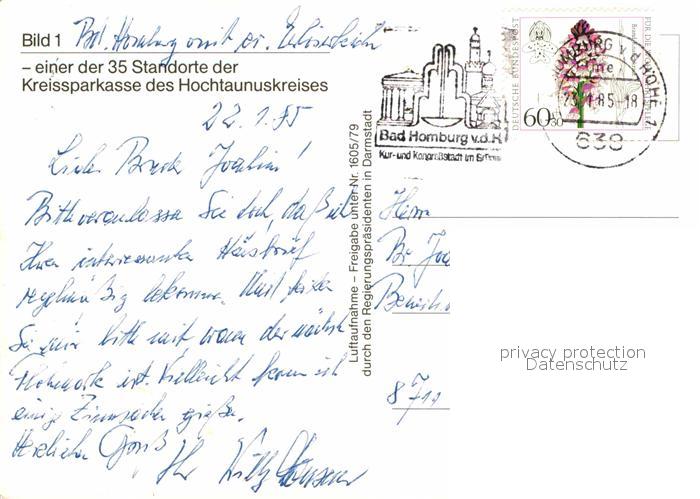 Bild 1 Bad Homburg mit ev. Erlöserkirche
– einer der 35 Standorte der
Kreissparkasse des Hochtaunuskreises
22.1.85
Lieber Bruder Joachim!
Bitte veranlassen Sie doch, daß ich
Ihren interessanten Hausbrief
regelmäßig bekomme. Und teilen
Sie mir bitte mit, wann der nächste
ist. Vielleicht kann ich
einige Zinnsachen gießen.
Herzliche Grüße
Ihr Willy
Luftaufnahme – Freigabe unter Nr. 1605/79
durch den Regierungspräsidenten in Darmstadt
Bad Homburg v.d.H.
Kur- und Kongreßstadt im
DEUTSCHE BUNDESPOST
60
HOMBURG v.d. HÖHE 1
23.1.85-18
638
Herrn
Br. Joa
871
privacy protection
Datenschutz